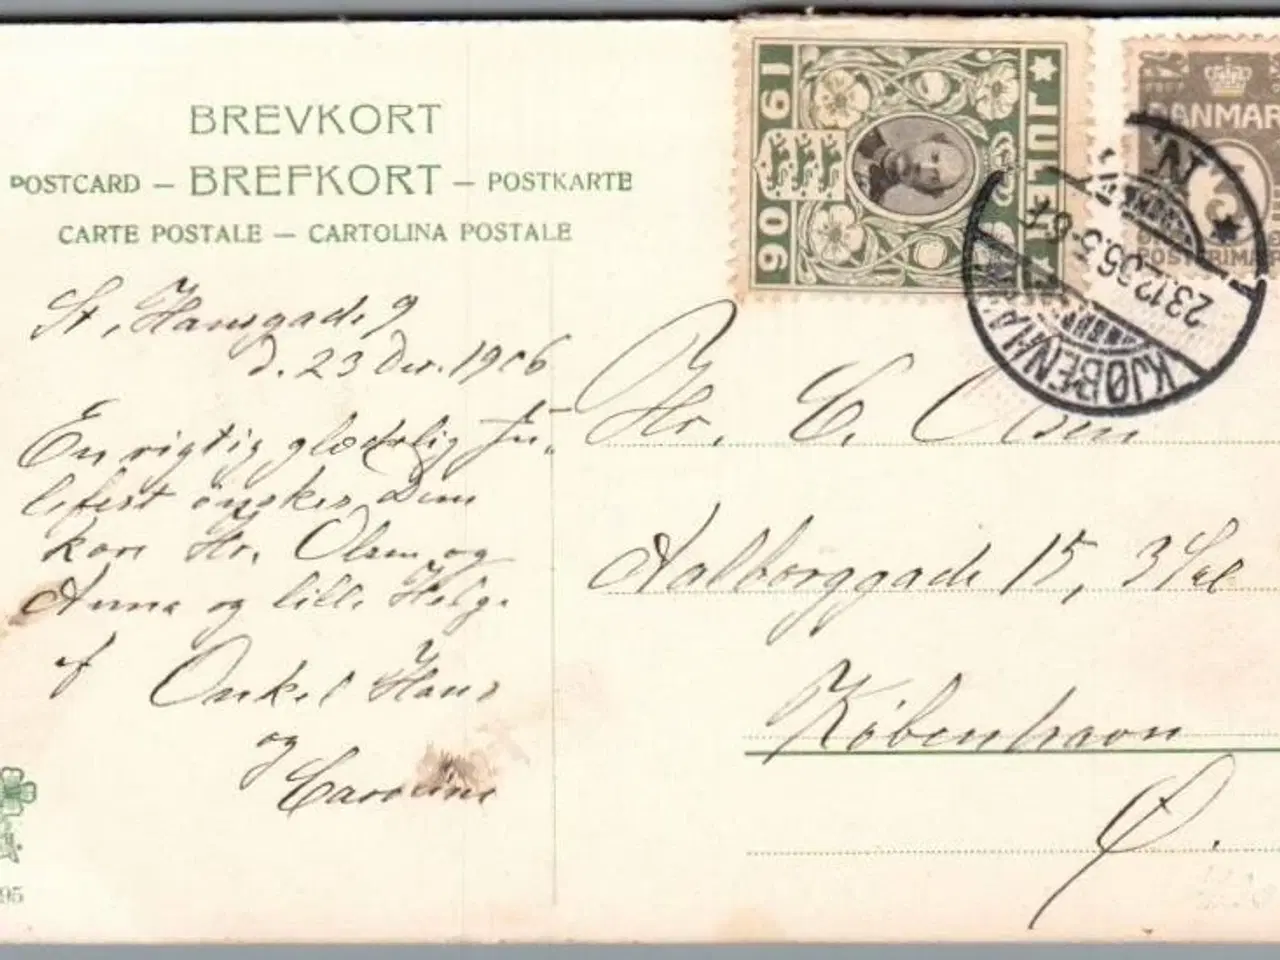 BREVKORT
POSTCARD — BREFKORT — POSTKARTE
CARTE POSTALE — CARTOLINA POSTALE
JULEN
1906
DANMARK
KJØBENHAVN N.
23.12.06.
St. Hansgade 9
d. 23 Dec. 1906
En rigtig glædelig Ju-
lefest ønskes Dem
kære Hr. Olsen og
Anna og lille Helge
af Onkel Hans
og
Caroline
Hr. C. Olsen
Aalborggade 15, 3 Sal
København
Ø.
95